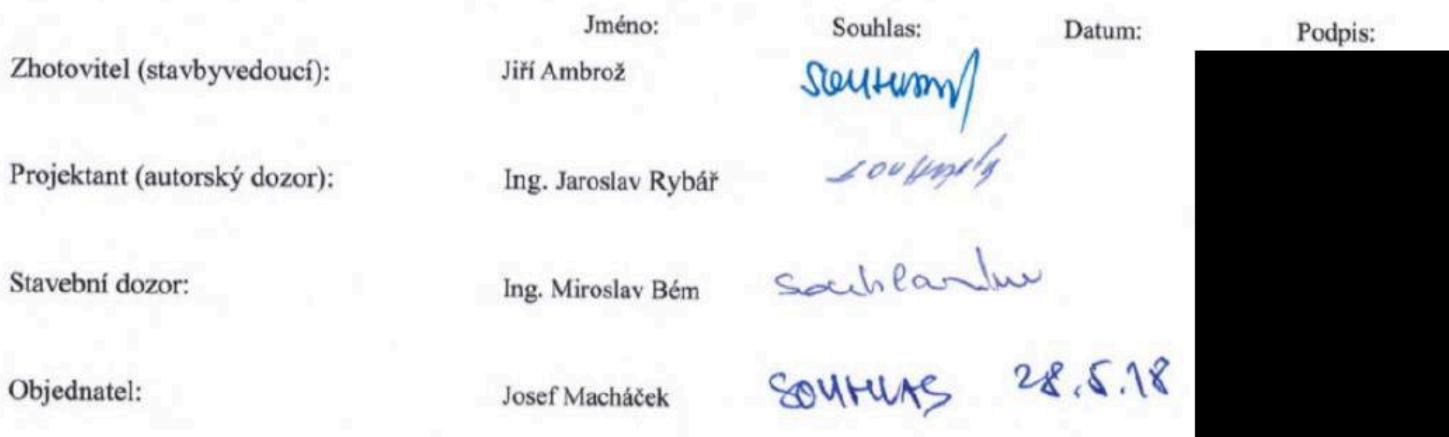 Jméno: Souhlas: Datum: Podpis:
Zhotovitel (stavbyvedoucí): Jiří Ambrož
Projektant (autorský dozor): Ing. Jaroslav Rybář
Stavební dozor: Ing. Miroslav Bém souhlasím
Objednatel: Josef Macháček SOUHLAS 28.5.18